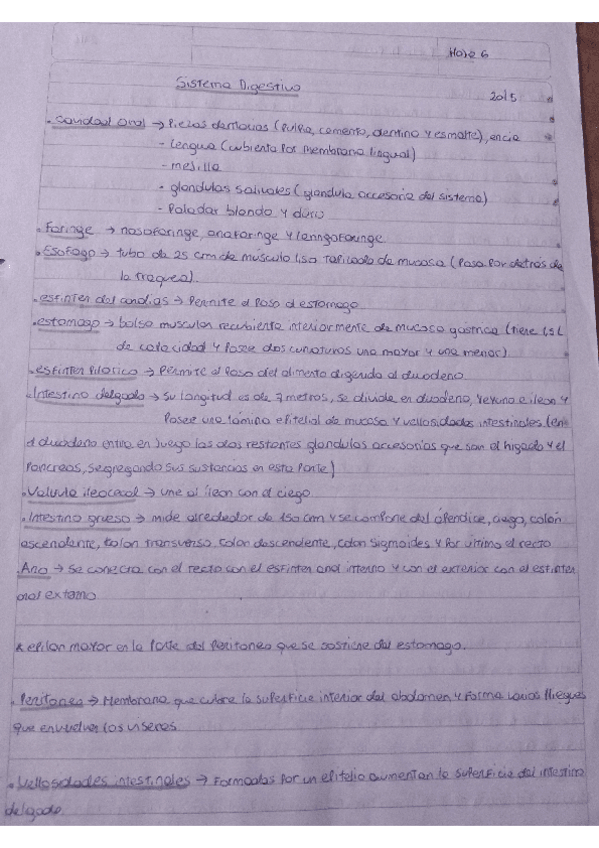 Hoja 6
Sistema Digestivo
20/5
• Cavidad oral → Piezas dentarias (Pulpa, cemento, dentina y esmalte), encia
- Lengua (cubierta Por membrana lingual)
- mejilla
- glandulas salivales (glandula accesoria del sistema)
- Paladar blando y duro
• Faringe → nasofaringe, orofaringe y laringofaringe
• Esofago → tubo de 25 cm de músculo liso tapizado de mucosa (Pasa Por detras de
la traquea).
• esfinter del cardias → Permite el Paso al estomago
• estomago → bolsa muscular recubierta interiormente de mucosa gastrica (tiene 1,5 L
de capacidad y Posee dos curvaturas una mayor y una menor)
• esfinter Pilorico → Permite el Paso del alimento digerido al duodeno
• Intestino delgado → Su longitud es de 7 metros, se divide en duodeno, Yeyuno e ileon y
Posee una lamina epitelial de mucosa y vellosidades intestinales (en
el duodeno entra en juego las dos restantes glandulas accesorias que son el higado y el
Pancreas, segregando sus sustancias en esta Parte)
• Valvula ileocecal → une al ileon con el ciego
• Intestino grueso → mide alrededor de 150 cm y se compone del apendice, ciego, colon
ascendente, Colon transverso, Colon descendente, Colon sigmoides y Por ultimo el recto
• Ano → se conecta con el recto con el esfinter anal interno y con el exterior con el esfinter
anal externo
* epilon mayor en la Parte del Peritoneo que se sostiene del estomago.
• Peritoneo → Membrana que cubre la superficie interior del abdomen y forma varios Pliegues
que envuelven los viseres.
• Vellosidades intestinales → Formadas Por un epitelio aumentan la superficie del intestino
delgado.